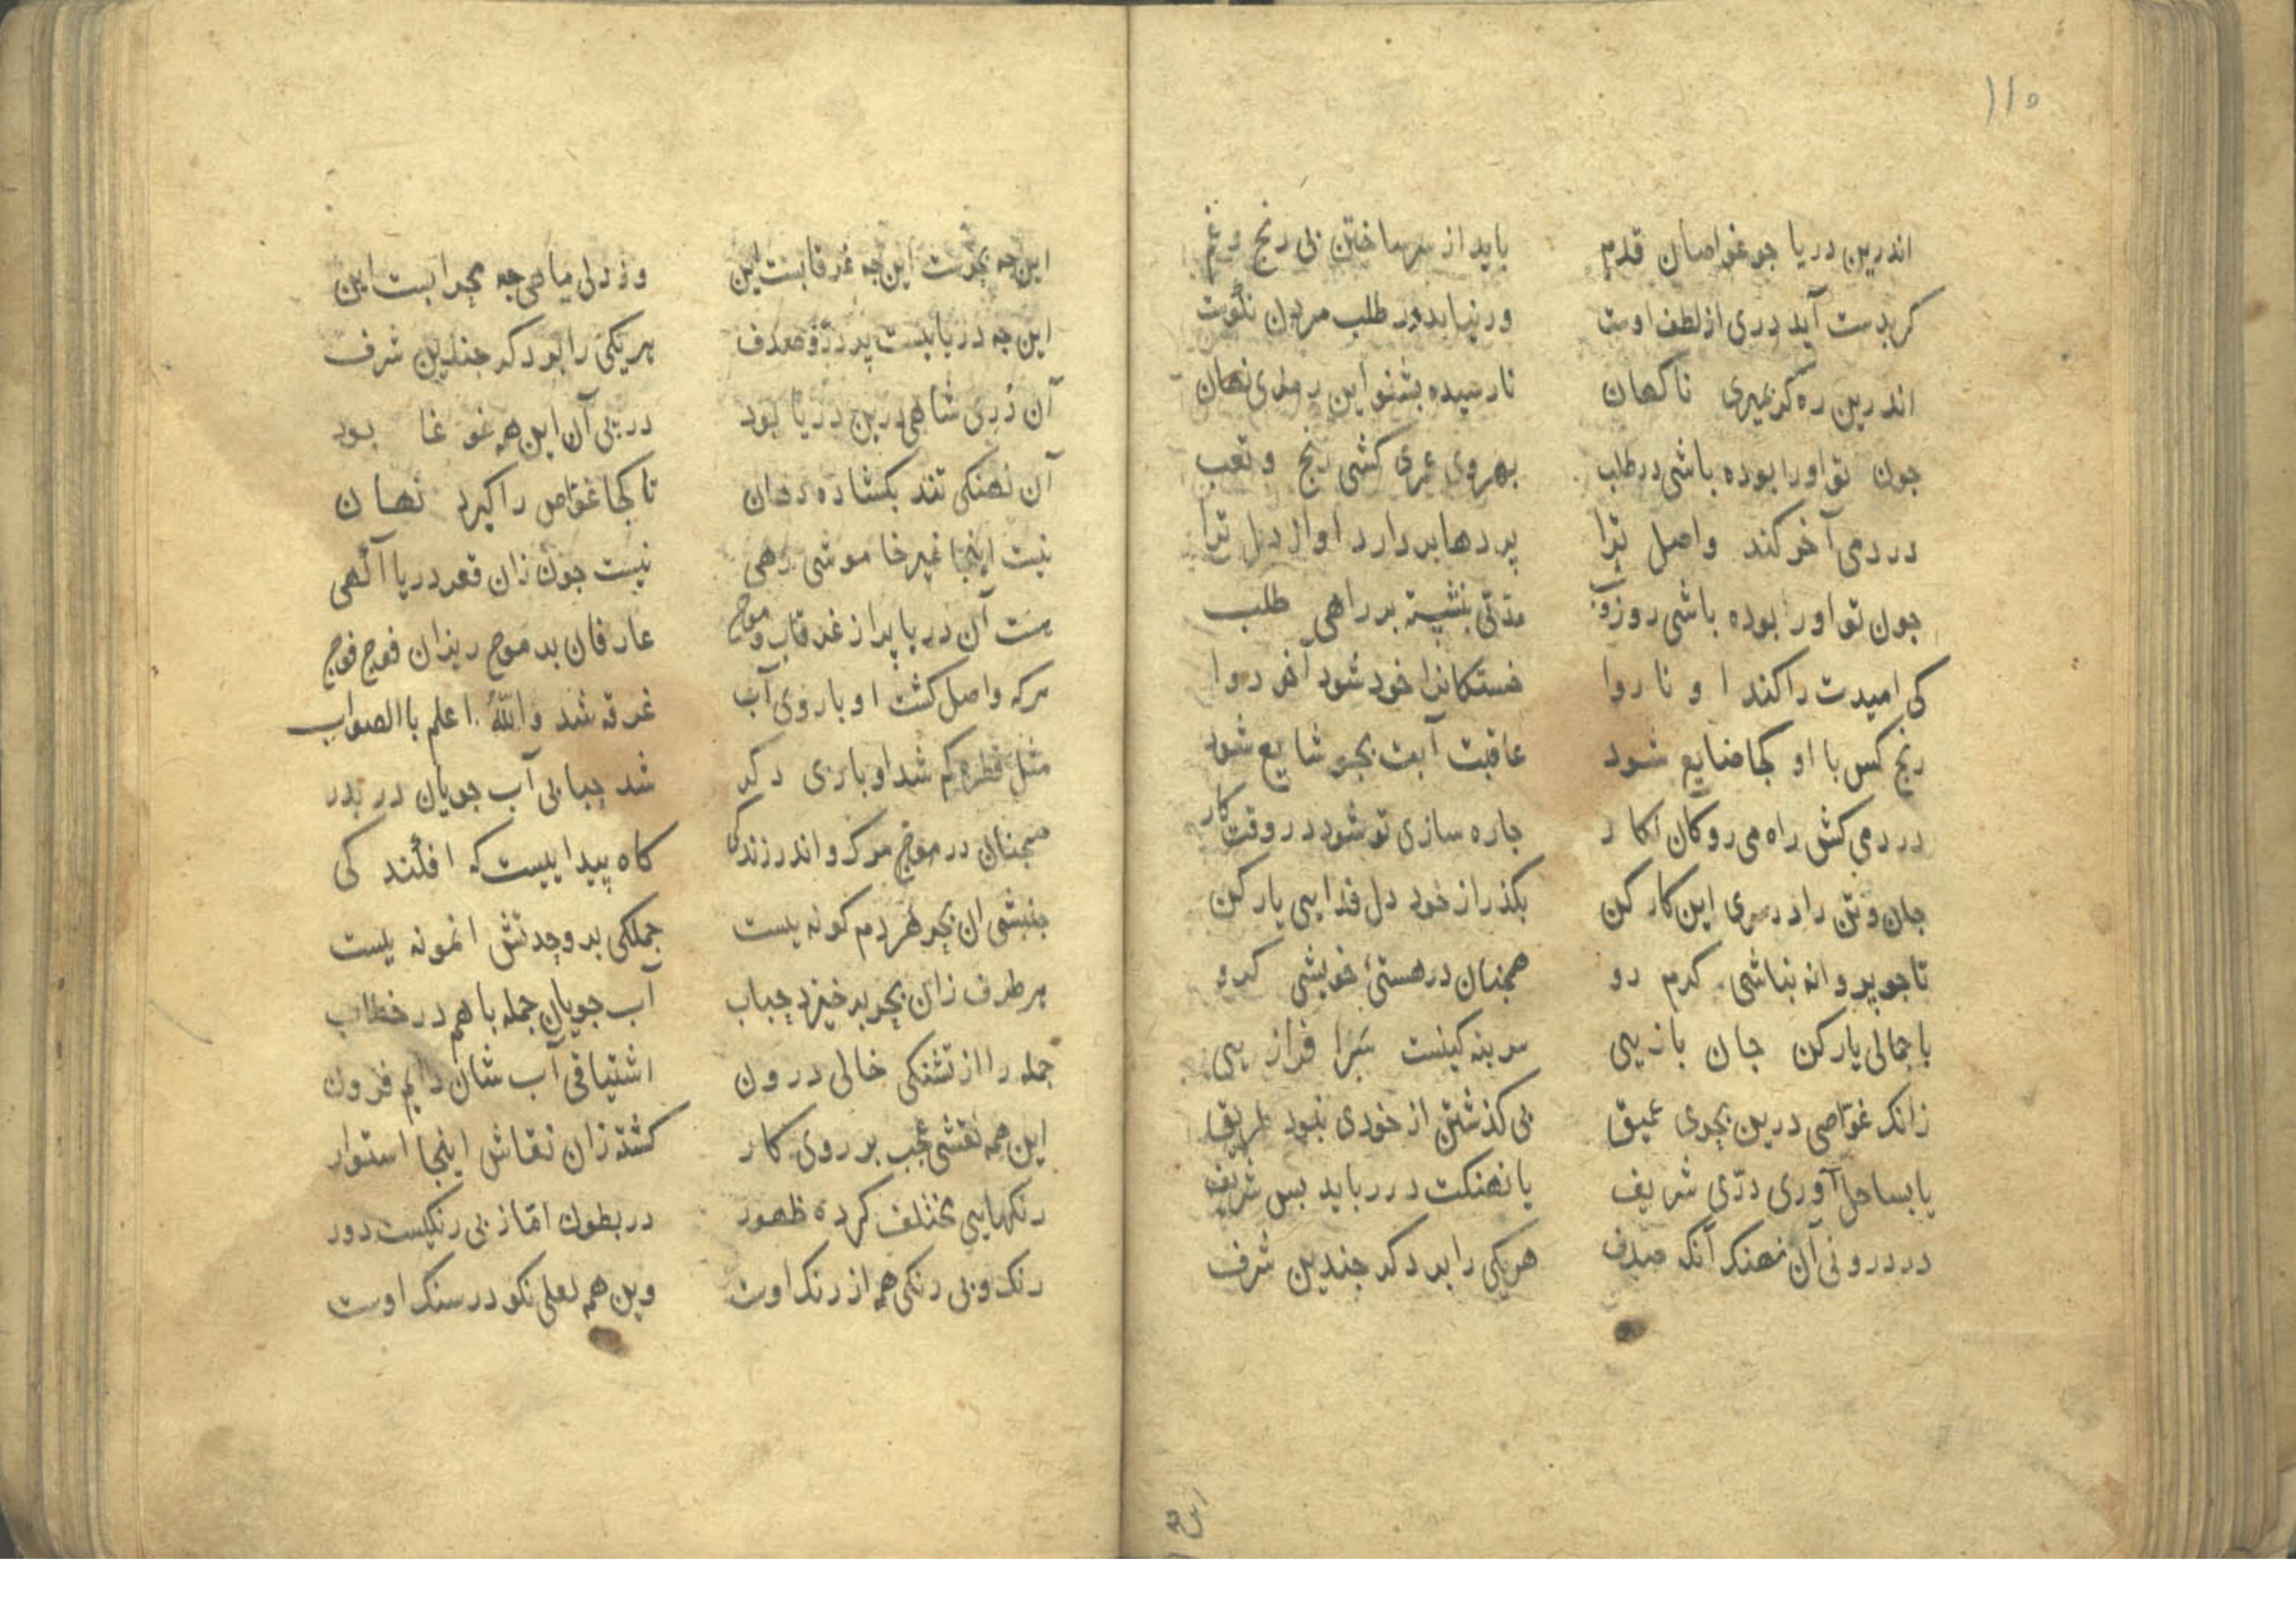 ۱۱۵
اندرین دریا جو غواصان قدم باید از سر ساختن بی رنج و غم
کر بدست آید دری از لطف اوست ور نیابد در طلب مردن نکوست
اندرین ره کر بمیری ناکهان نارسیده بشنو این رمزی نهان
جون تو اورا بوده باشی در طلب بهروی عمری کشی رنج و تعب
در دمی آخر کند واصل ترا پردها بردارد او از دل ترا
جون تو اورا بوده باشی روز و شب مدتی بنشسته بر راهی طلب
کی امیدت را کند او ناروا خستکانرا خود شود آخر دوا
رنج کس با او کجا ضایع شود عاقبت آبت بجو شایع شود
درد می کش راه می رو کان نکار جاره سازی تو شود در وقت کار
جان و تن را در سری این کار کن بکذر از خود دل فدایی یار کن
تا جو پروانه نباشی کرم رو همجنان در هستیٔ خویشی کرو
با جمالی یار کن جان بازیی سر بنه کینست سرافرازیی
زانک غواصی درین بحری عمیق بی کذشتن از خودی نبود طریق
یا بساحل آوری دری شریف یا نهنکت در رباید بس شریف
در درونی آن نهنک آنک صدف هریکی را بد دکر جندین شرف
این جه بحرست این جه غرقابست این وز دلی ماهی جه بحرابست این
این جه دریاییست پر در و صدف هریکی را بود کر جندین شرف
آن دری شاهی درین دریا بود در پی آن این همه غوغا بود
آن نهنکی تند بکشاده دهان تا کجا غواص را کیرد نهان
نیست اینجا غیر خاموشی رهی نیست جون زان قعر دریا آکهی
هست آن دریا پر از غرقاب و موج عارفان بد موج ریزان فوج فوج
هرکه واصل کشت او با روی آب غرقه شد والله اعلم باالصواب
مثل قطره کم شد او باری دکر شد حبابی آب جویان در بدر
همجنان در موج مرک و اندر زندکی کاه پیداییست که افکند کی
جنبشی ان بحر هر دم کونه یست جملکی بر وحدتش انمونه یست
هر طرف زان بحر بر خیزد حباب آب جویان جمله باهم در خطاب
جمله را از تشنکی خالی درون اشتیاقی آب شان دایم فزون
این همه نقشی عجب بر روی کار کشته زان نقاش اینجا استوار
رنکهایی مختلف کرده ظهور در بطون اما ز بی رنکیست دور
رنک و بی رنکی همه از رنک اوست وین همه لعلی نکو در سنک اوست